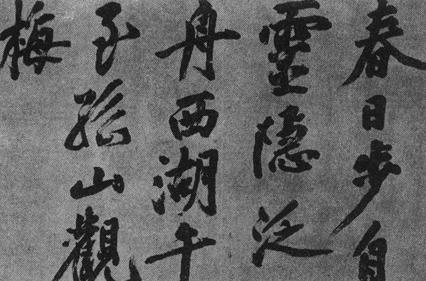 春日步自
靈隱泛
舟西湖午
至孤山觀
梅